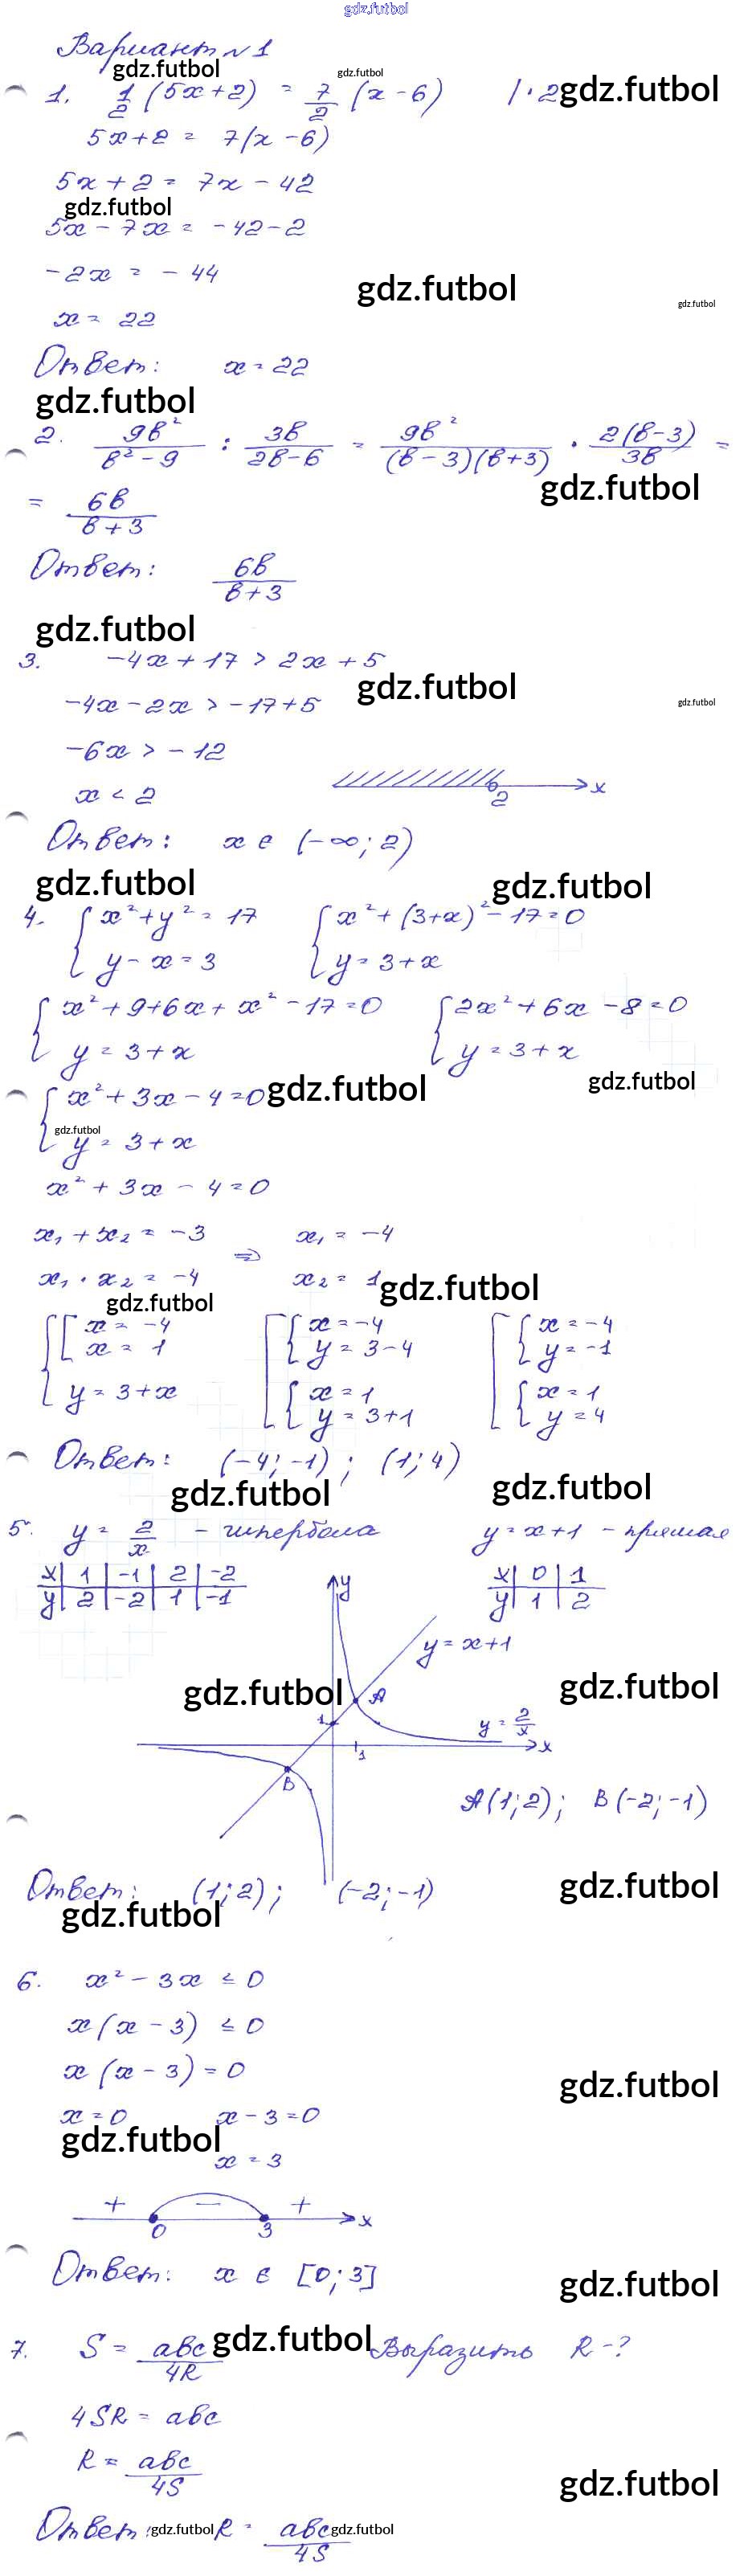 gdz.futbol
Вариант №1
gdz.futbol gdz.futbol
1. 1/2 (5x+2) = 7/2 (x-6) |·2 gdz.futbol
5x+2 = 7(x-6)
5x+2 = 7x-42
gdz.futbol
5x-7x = -42-2
-2x = -44
gdz.futbol gdz.futbol
x = 22
Ответ: x = 22
gdz.futbol
2. 9b²/(b²-9) : 3b/(2b-6) = 9b²/((b-3)(b+3)) · 2(b-3)/3b =
gdz.futbol
= 6b/(b+3)
Ответ: 6b/(b+3)
gdz.futbol
3. -4x+17 > 2x+5
gdz.futbol gdz.futbol
-4x-2x > -17+5
-6x > -12
x < 2
2 x
Ответ: x ∈ (-∞; 2)
gdz.futbol gdz.futbol
4. { x²+y² = 17 { x²+(3+x)²-17=0
y-x = 3 y = 3+x
{ x²+9+6x+x²-17=0 { 2x²+6x-8=0
y = 3+x y = 3+x
gdz.futbol
{ x²+3x-4=0 gdz.futbol
gdz.futbol
y = 3+x
x²+3x-4=0
x₁+x₂ = -3 ⇒ x₁ = -4
x₁·x₂ = -4 x₂ = 1 gdz.futbol
gdz.futbol
{ [ x = -4 [ { x = -4 [ { x = -4
x = 1 y = 3-4 y = -1
y = 3+x { x = 1 { x = 1
y = 3+1 y = 4
Ответ: (-4; -1); (1; 4)
gdz.futbol gdz.futbol
5. y = 2/x - гипербола y = x+1 - прямая
x | 1 | -1 | 2 | -2 x | 0 | 1
y | 2 | -2 | 1 | -1 y | 1 | 2
y
y = x+1
gdz.futbol A gdz.futbol
1 y = 2/x
x
1
B
A(1; 2); B(-2; -1)
Ответ: (1; 2); (-2; -1) gdz.futbol
gdz.futbol
6. x²-3x ≤ 0
x(x-3) ≤ 0
x(x-3) = 0 gdz.futbol
x = 0 x-3 = 0
gdz.futbol
x = 3
+ - + x
0 3
Ответ: x ∈ [0; 3] gdz.futbol
7. S = abc/4R gdz.futbol Выразить R-?
4SR = abc
R = abc/4S
gdz.futbol
Ответ: gdz.futbol R = abc/4S gdz.futbol